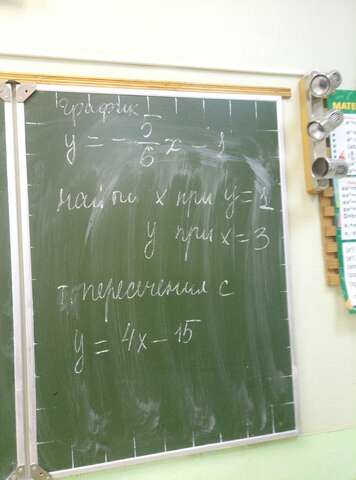 график
y = - 5/6 x - 1
найти x при y = 1
y при x = 3
т. пересечения с
y = 4x - 15
МАТЕ